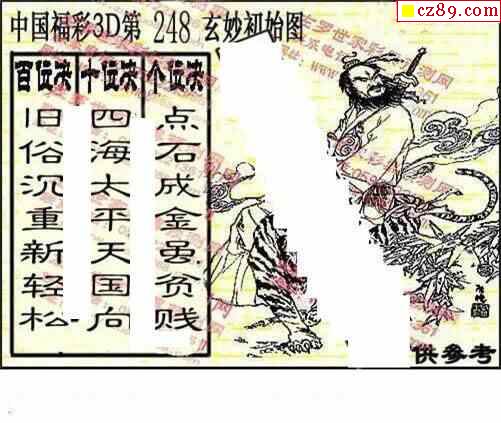 cz89.com
中国福彩3D第 248 玄妙初始图
百位决 十位决 个位决
旧俗沉重新轻松
四海太平天国向
点石成金
贫贱
供参考